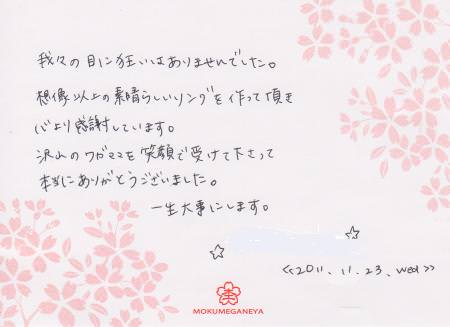 我々の目に狂いはありませんでした。
想像以上の素晴らしいリングを作って頂き
心より感謝しています。
沢山のワガママを笑顔で受けて下さって
本当にありがとうございました。
一生大事にします。
<<2011. 11. 23. wed>>
MOKUMEGANEYA